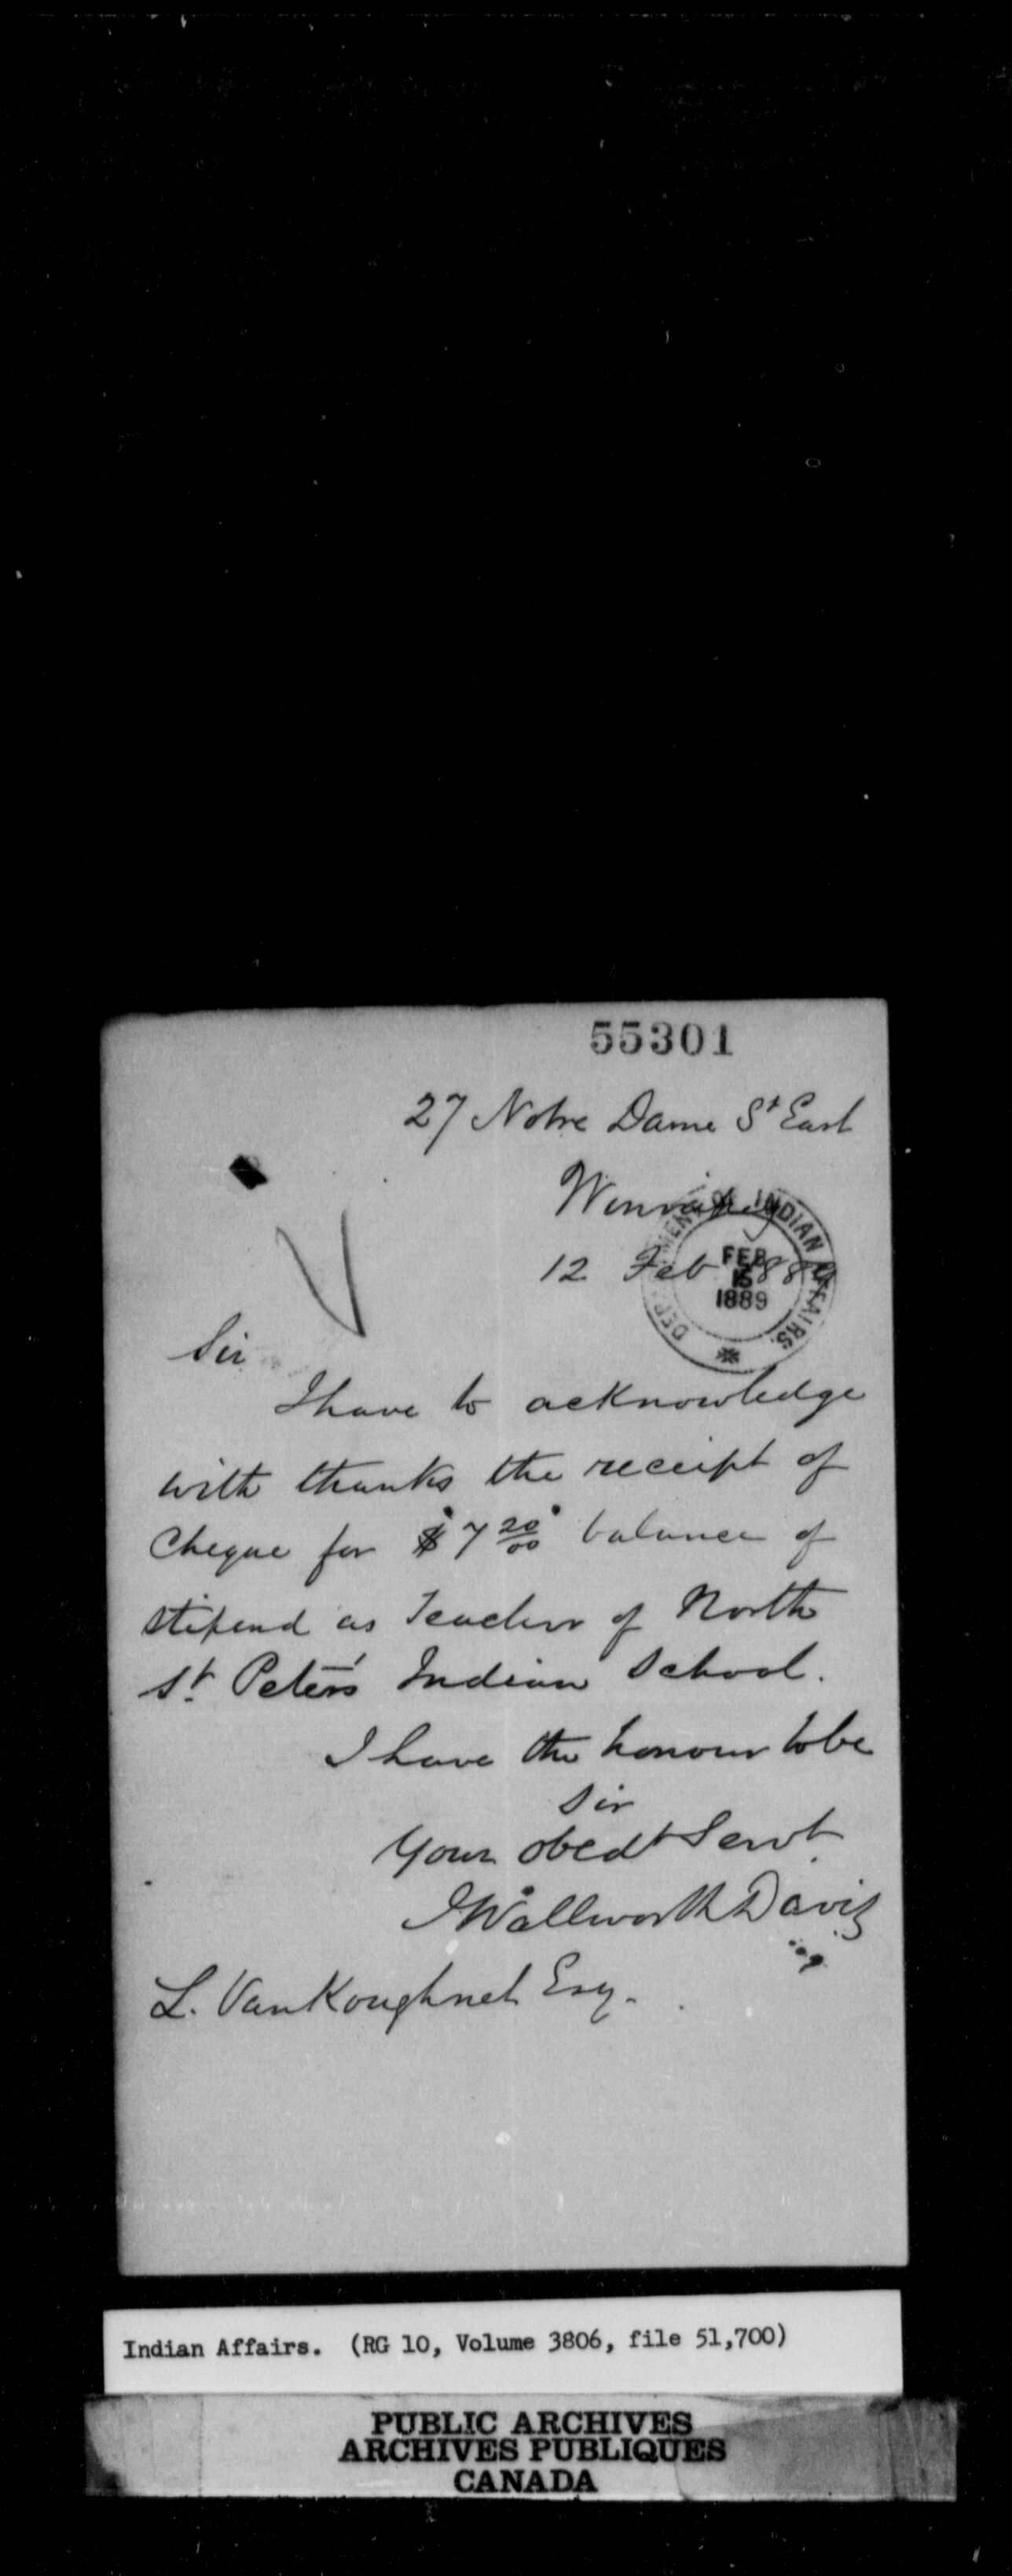 55301
27 Notre Dame St East
Winnipeg
12 Feb 1889
DEPARTMENT OF INDIAN AFFAIRS
FEB
15
1889
Sir
I have to acknowledge
with thanks the receipt of
Cheque for $7 20/00 balance of
stipend as Teacher of North
St. Peter's Indian School.
I have the honour to be
Sir
Your obedt Servt
J Wallworth Davis
L. VanKoughnet Esq.
Indian Affairs. (RG 10, Volume 3806, file 51,700)
PUBLIC ARCHIVES
ARCHIVES PUBLIQUES
CANADA